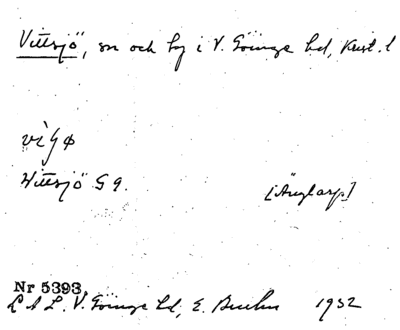 Vittsjö, sn och by i V. Göinge hd, Krist. l
Wittsjö G 9.
[Änglarp]
Nr 5393
L A L. V. Göinge hd, E. 1932